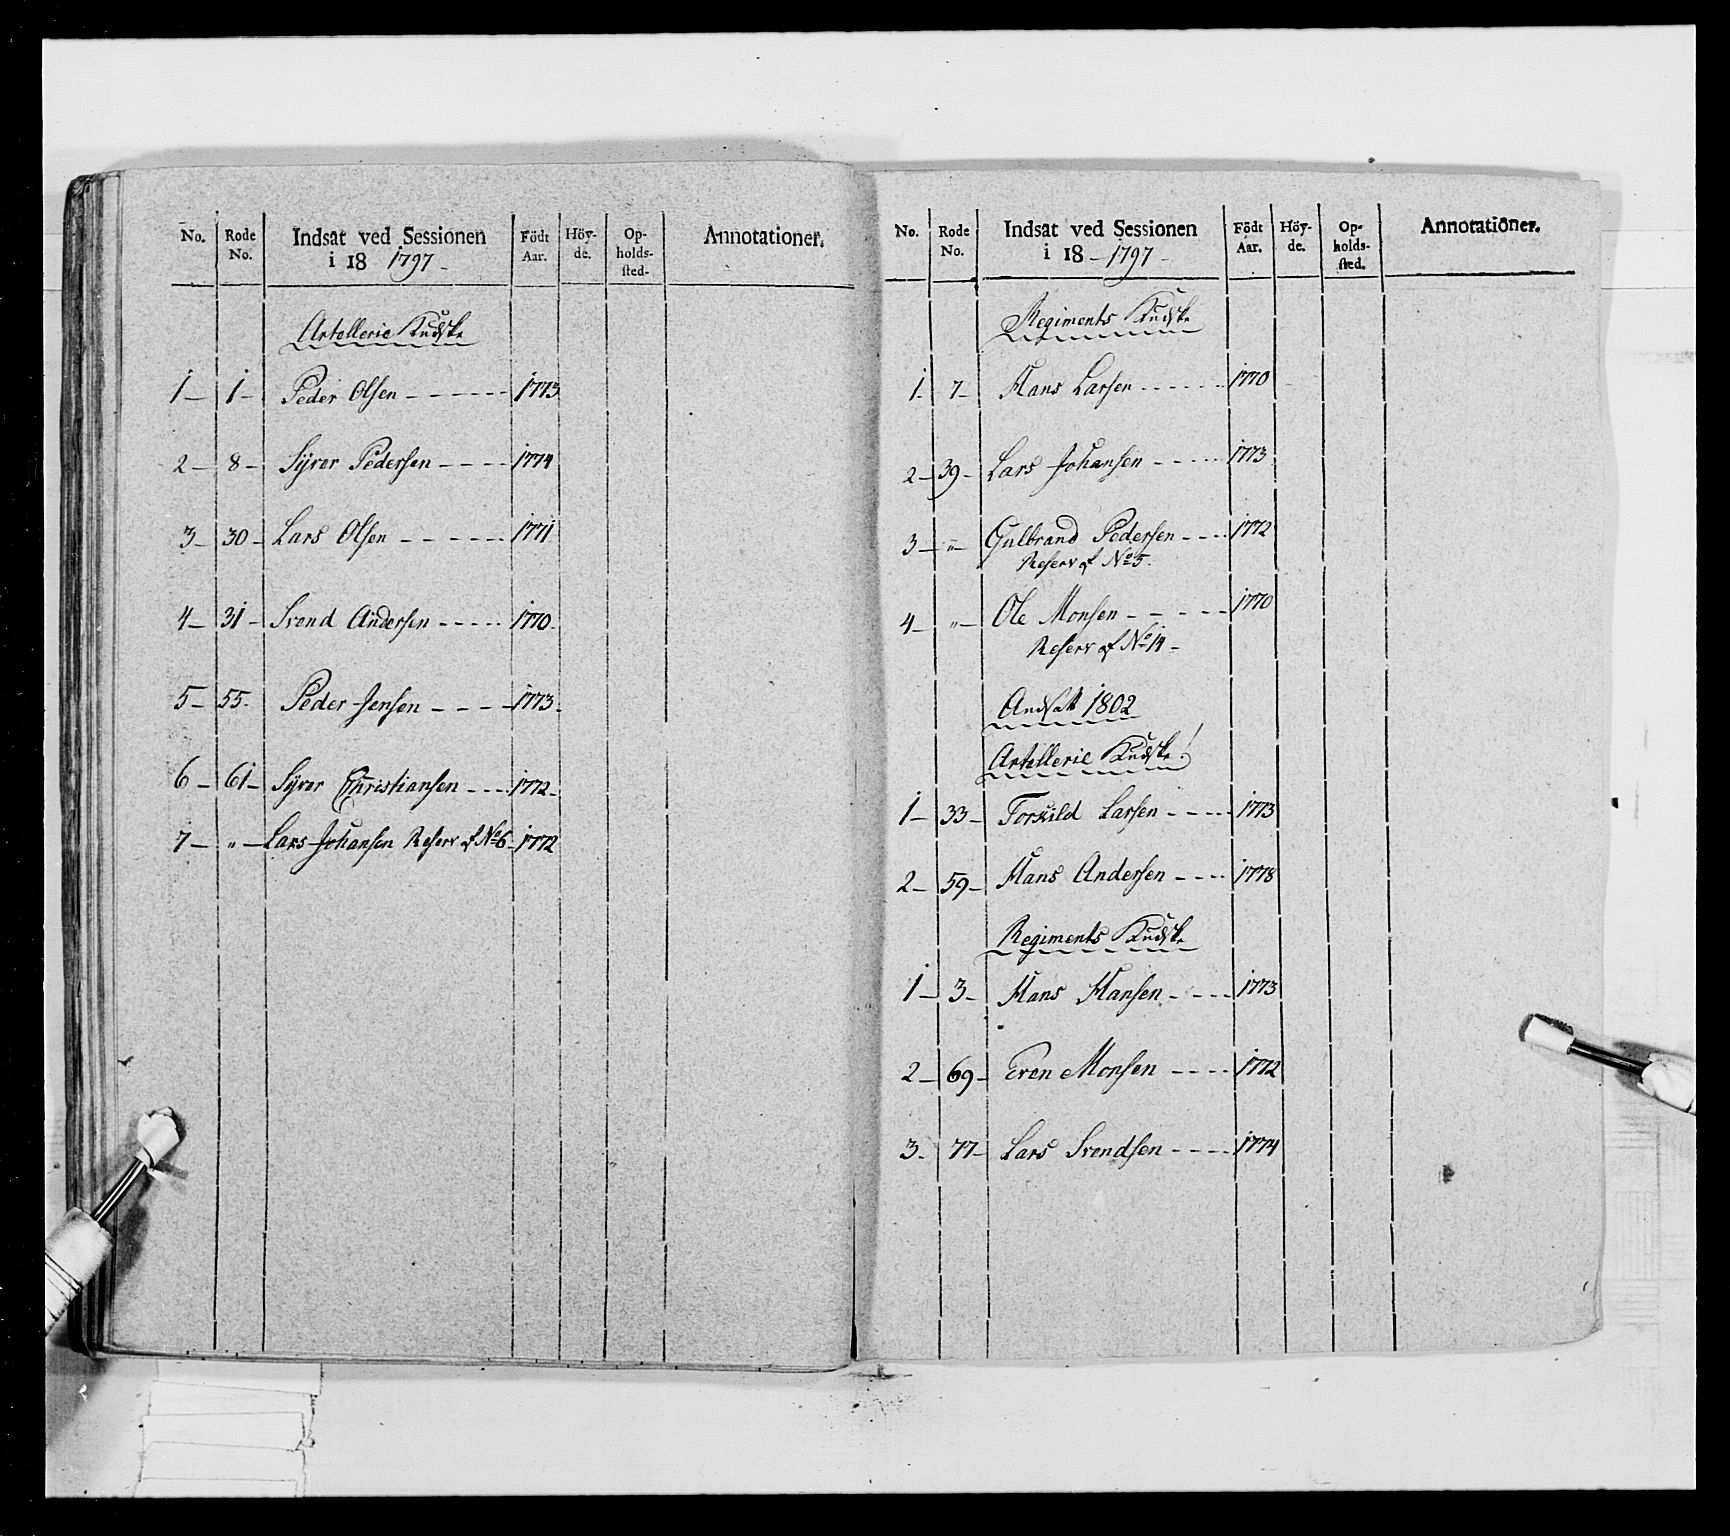 No. Rode No. Indsat ved Sessionen i 18 1797 Födt Aar. Höy-de. Op-holds-sted. Annotationer.
Artellerie Kudske
1 1 Peder Olsen 1773
2 8 Syver Pedersen 1774
3 30 Lars Olsen 1771
4 31 Svend Andersen 1770
5 55 Peder Jensen 1773
6 61 Syver Christiansen 1772
7 " Lars Johansen Reserv af No 6 1772
No. Rode No. Indsat ved Sessionen i 18 1797 Födt Aar. Höy-de. Op-holds-sted. Annotationer.
Regiments Kudske
1 7 Hans Larsen 1770
2 39 Lars Johansen 1773
3 " Gulbrand Pedersen 1772
Reserv af No 5.
4 " Ole Monsen 1770
Reserv af No 14
Andsatt 1802
Artellerie Kudske
1 33 Torkild Larsen 1773
2 59 Hans Andersen 1778
Regiments Kudske
1 3 Hans Hansen 1773
2 69 Even Monsen 1772
3 77 Lars Svendsen 1774